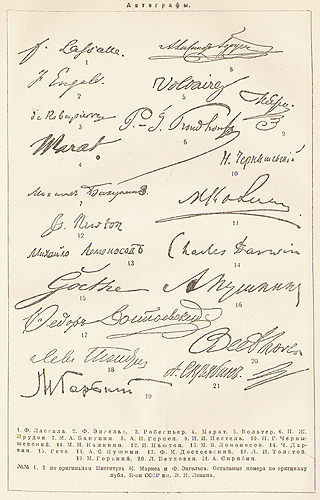 Автографы.
F. Lassalle.
1
F. Engels.
2
Voltaire
5
8
de Robespierre
3
P.-J. Proudhon
6
9
Marat
4
Н. Чернышевский
10
Михаил Бакунин
7
11
Is. Newton
12
Михайло Ломоносовъ
13
Charles Darwin
14
Goethe
15
А Пушкинъ
16
Федоръ Достоевский
17
Beethoven
20
Левъ Толстой
18
М Горький
19
А. Скрябинъ.
21
1. Ф. Лассаль. 2. Ф. Энгельс. 3. Робеспьер. 4. Марат. 5. Вольтер. 6. П. Ж.
Прудон. 7. М. А. Бакунин. 8. А. И. Герцен. 9. П. И. Пестель. 10. Н. Г. Черны-
шевский. 11. М. И. Калинин. 12. И. Ньютон. 13. М. В. Ломоносов. 14. Ч. Дар-
вин. 15. Гете. 16. А. С. Пушкин. 17. Ф. М. Достоевский. 18. Л. Н. Толстой.
19. М. Горький. 20. Л. Бетховен. 21. А. Скрябин.
№№ 1, 2 по оригиналам Института К. Маркса и Ф. Энгельса. Остальные номера по оригиналу
публ. Б-ки СССР им. В. И. Ленина.